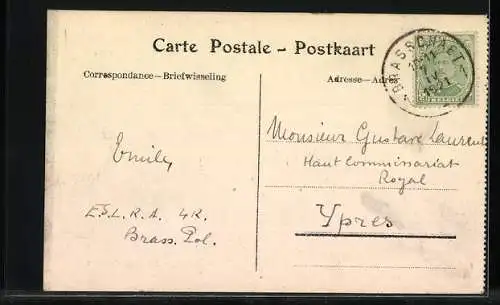 Carte Postale – Postkaart
Correspondance—Briefwisseling
Adresse—Adres
BRASSCHAET
1921
Monsieur Gustave Laurent
Haut Commissariat
Royal
Ypres
Emile
E.S.L.R.A. 4R.
Brass. Pol.